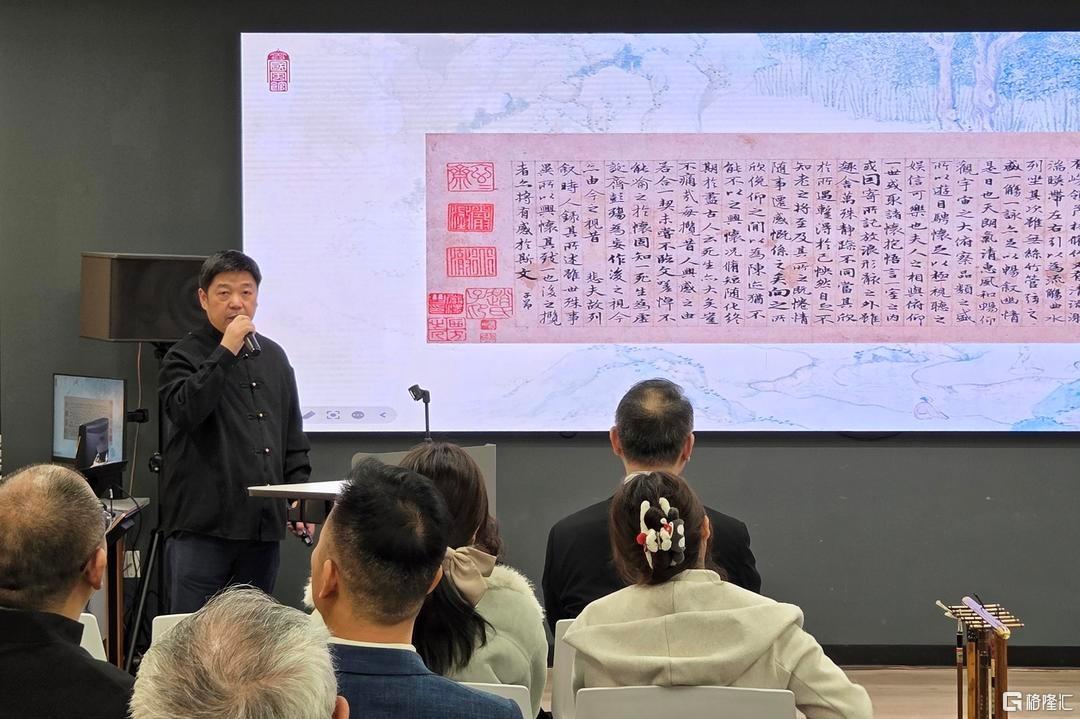 湍暎帶左右引以為流觴曲水
列坐其次雖無絲竹管弦之
盛一觴一詠亦足以暢敘幽情
是日也天朗氣清惠風和暢仰
觀宇宙之大俯察品類之盛
所以遊目騁懷足以極視聽之
娛信可樂也夫人之相與俯仰
一世或取諸懷抱悟言一室之內
或因寄所託放浪形骸之外雖
趣舍萬殊静躁不同當其欣
於所遇暫得於己怏然自足不
知老之將至及其所之既惓情
隨事遷感慨係之矣向之所
欣俛仰之間以為陳迹猶不
能不以之興懷況脩短隨化終
期於盡古人云死生亦大矣豈
不痛哉每攬昔人興感之由
若合一契未嘗不臨文嗟悼不
能喻之於懷固知一死生為虛
誕齊彭殤為妄作後之視今
亦由今之視昔 悲夫故列
敘時人錄其所述雖世殊事
異所以興懷其致一也後之攬
者亦將有感於斯文 子昂
趙氏子昂
格隆汇